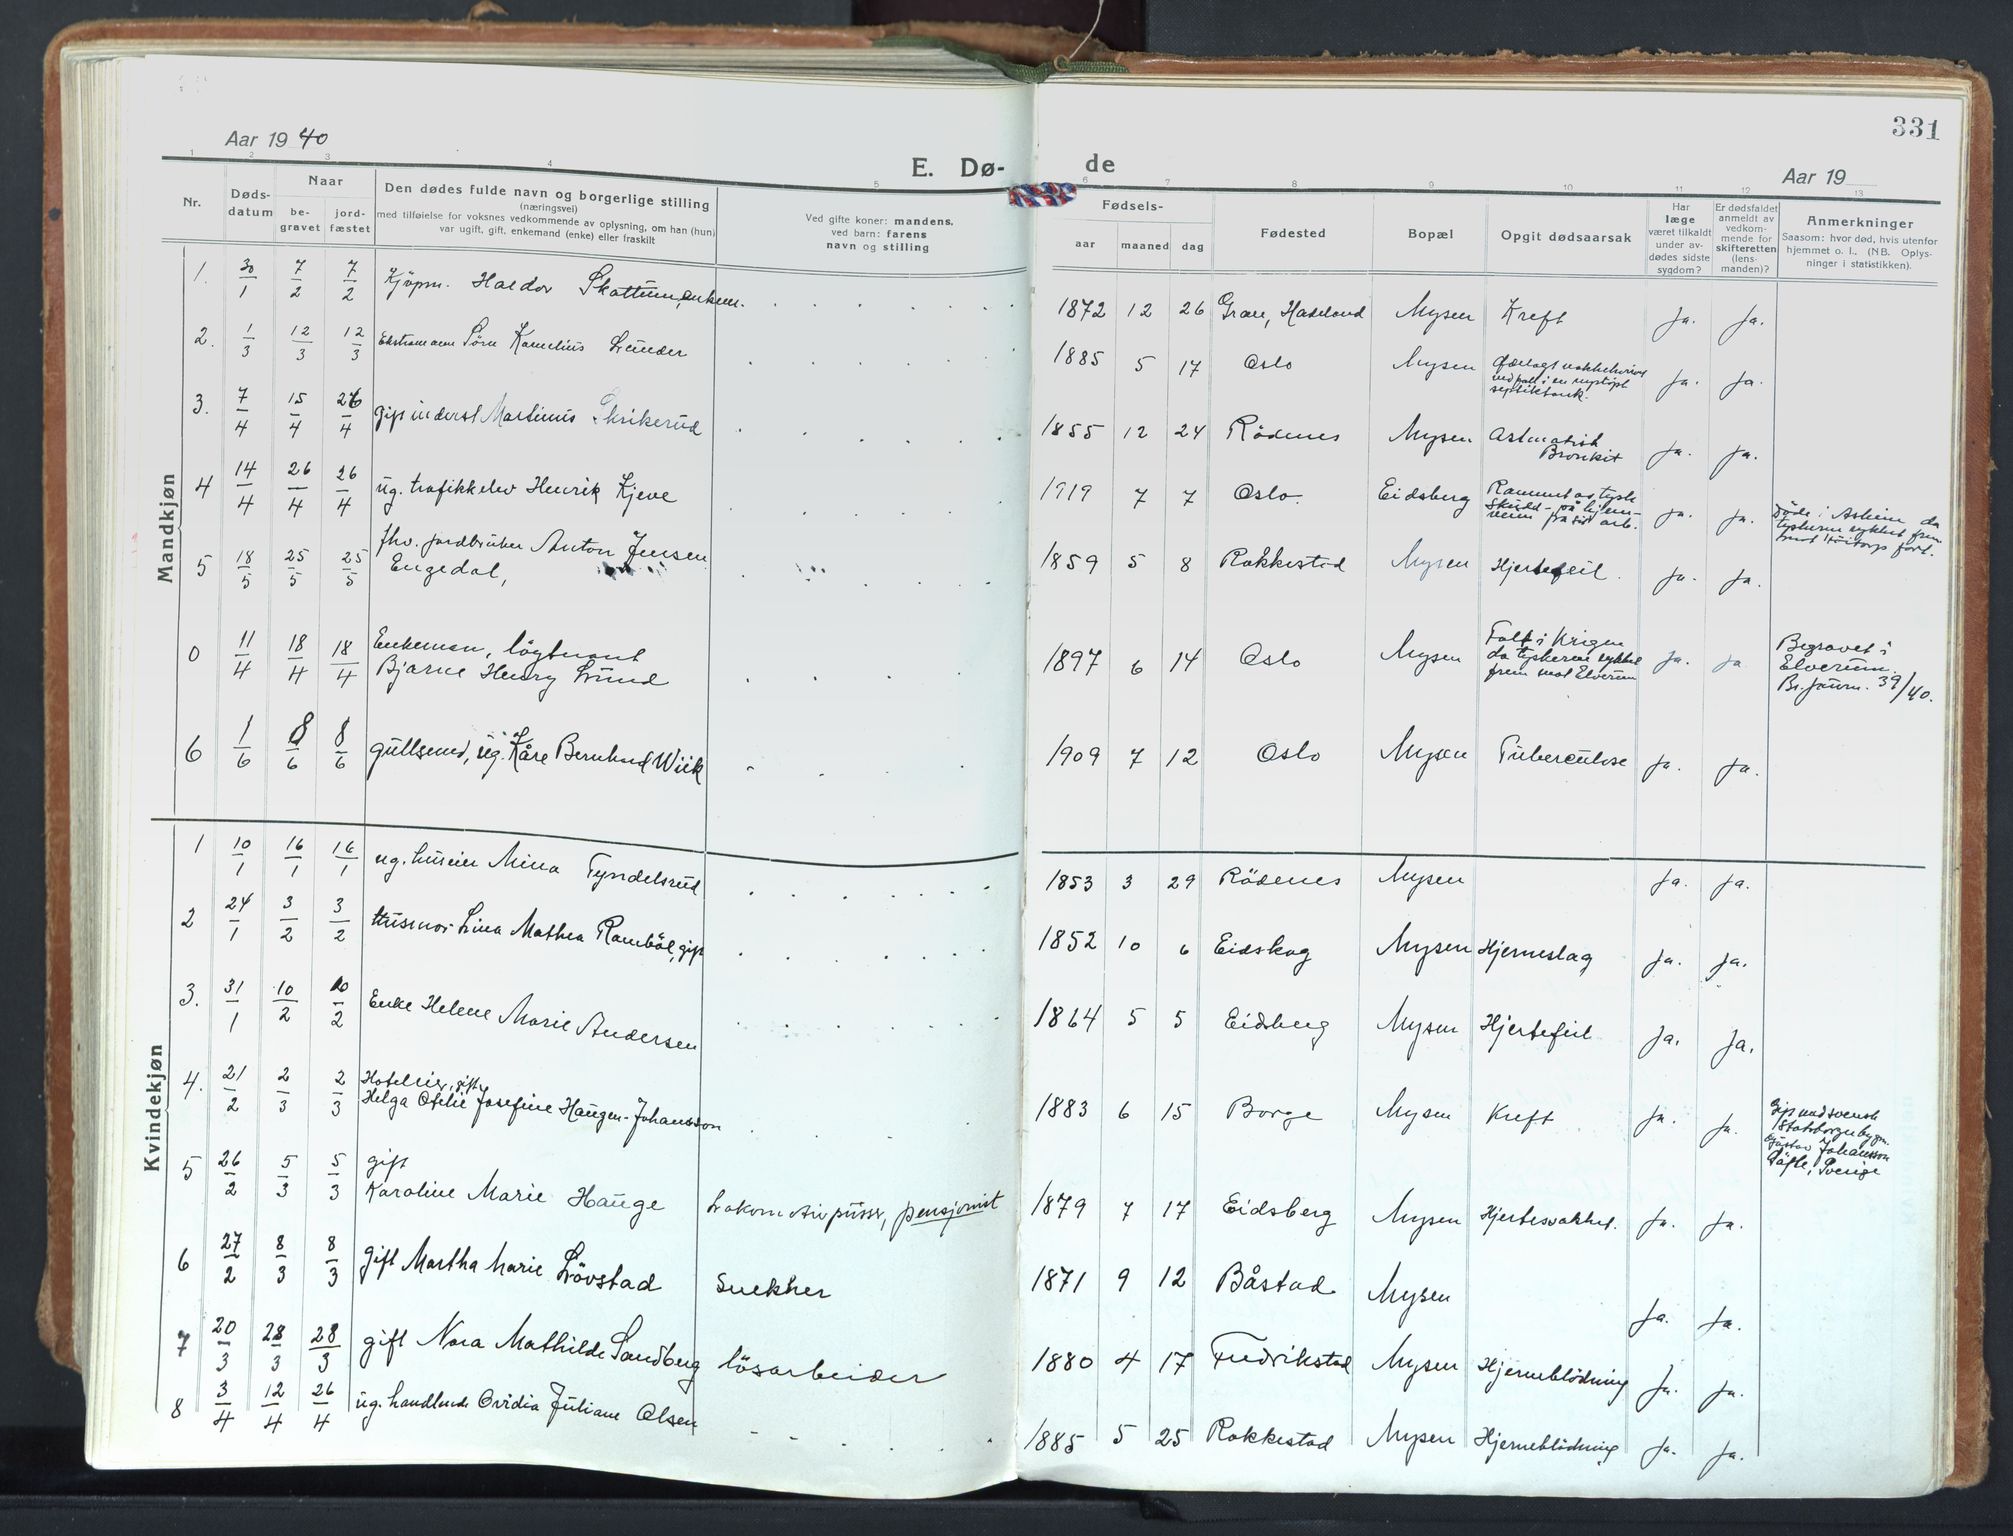 331
Aar 19 40
E. Dø-
de
Aar 19
1 2 3 4 5 6 7 8 9 10 11 12 13
Nr.
Døds-
datum
Naar
be-
gravet
jord-
fæstet
Den dødes fulde navn og borgerlige stilling
(næringsvei)
med tilføielse for voksnes vedkommende av oplysning, om han (hun)
var ugift, gift, enkemand (enke) eller fraskilt
Ved gifte koner: mandens.
ved barn: farens
navn og stilling
Fødsels-
aar maaned dag
Fødested
Bopæl
Opgit dødsaarsak
Har
læge
været tilkaldt
under av-
dødes sidste
sygdom?
Er dødsfaldet
anmeldt av
vedkom-
mende for
skifteretten
(lens-
manden)?
Anmerkninger
Saasom: hvor død, hvis utenfor
hjemmet o. l., (NB. Oplys-
ninger i statistikken).
Mandkjøn
1. 30/1 7/2 7/2 Kjøpm. Haldor Skattum, enkem. 1872 12 26 Gran, Hadeland Mysen Kreft Ja. Ja.
2. 1/3 12/3 12/3 Sörn Kornelius Lunder 1885 5 17 Oslo Mysen
ved fall i en nystöpt
septiktank. Ja. Ja.
3. 7/4 15/4 26/4 Gift inderst Martinius Skrikerud 1855 12 24 Rödenes Mysen Astmatisk
Bronkit Ja. Ja.
4 14/4 26/4 26/4 ug. trafikkelev Henrik Kjeve 1919 7 7 Oslo. Eidsberg Rammet av tysk
skudd - på hjem-
veien fra sit arb. Ja. Ja.
Döde i Askim da
tyskerne rykket frem
mot Höitorp fort.
5 18/5 25/5 25/5 fhv. jordbruker Anton Jensen
Engedal, 1859 5 8 Rakkestad Mysen Hjertefeil. Ja. Ja.
0 11/4 18/4 18/4 Enkeman, löytnant
Bjarne Henry Lund 1897 6 14 Oslo Mysen Falt i Krigen
da tyskerne rykket
frem mot Elverum Ja. Ja.
Begravet i
Elverum.
Br. journ. 39/40.
6 1/6 8/6 8/6 gullsmed, ug. Kåre Bernhard Wiik 1909 7 12 Oslo Mysen Tuberculose Ja. Ja.
Kvindekjøn
1 10/1 16/1 16/1 ug. huseier Mina Tyndelsrud 1853 3 29 Rödenes Mysen Ja. Ja.
2 24/1 3/2 3/2 Husmor Lina Mathea Ramböl, gift 1852 10 6 Eidskog Mysen Hjerneslag Ja. Ja.
3. 31/1 10/2 10/2 Enke Helene Marie Andersen 1864 5 5 Eidsberg Mysen Hjertefeil Ja. Ja.
4. 21/2 2/3 2/3 Hotelleier, gift
Helga Ofelie Josefine Haugen-Johansson 1883 6 15 Borge Mysen Kreft Ja. Ja.
Gift med svensk
statsborger bygm.
Gustav Johansson
Gäfle, Sverige
5 26/2 5/3 5/3 gift
Karoline Marie Hauge Lokomotivpusser, pensjonist 1879 7 17 Eidsberg Mysen Hjertesvakhet. Ja. Ja.
6 27/2 8/3 8/3 Gift Martha Marie Lövstad Snekker 1871 9 12 Båstad Mysen Ja. Ja.
7 20/3 28/3 28/3 gift Nora Mathilde Sandberg lösarbeider 1880 4 17 Fredrikstad Mysen Hjerneblödning Ja. Ja.
8 3/4 12/4 26/4 ug. handlende Ovidia Juliane Olsen 1885 5 25 Rakkestad Mysen Hjerneblödning Ja. Ja.